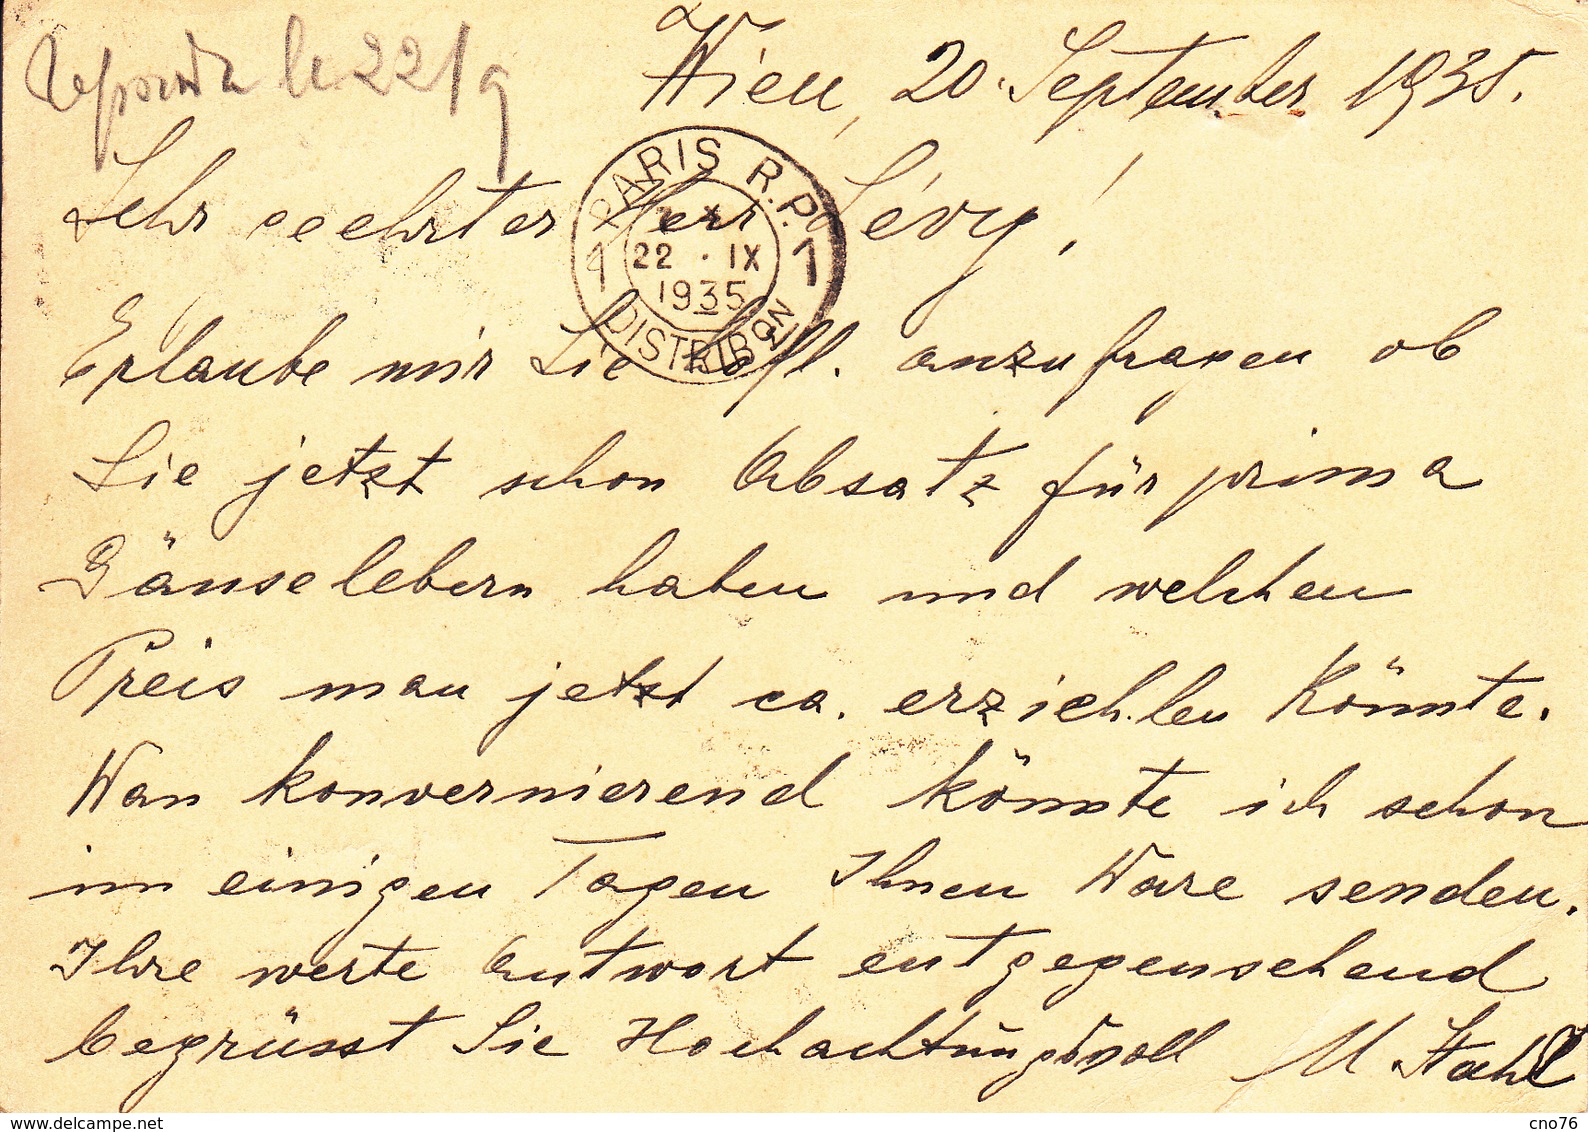 Reponda le 22/9
Wien, 20. September 1935.
Sehr geehrter Herr Lévy!
PARIS R.P.
1 22 · IX 1
1935
DISTRIBON
Erlaube mir Sie höfl. anzufragen ob
Sie jetzt schon Absatz für prima
Gänselebern haben und welchen
Preis man jetzt ca. erziehlen könnte.
Wan konvernierend könnte ich schon
in einigen Tagen Ihnen Ware senden.
Ihre werte Antwort entgegensehend
begrüsst Sie Hochachtungsvoll M. Stahl
www.delcampe.net
cno76